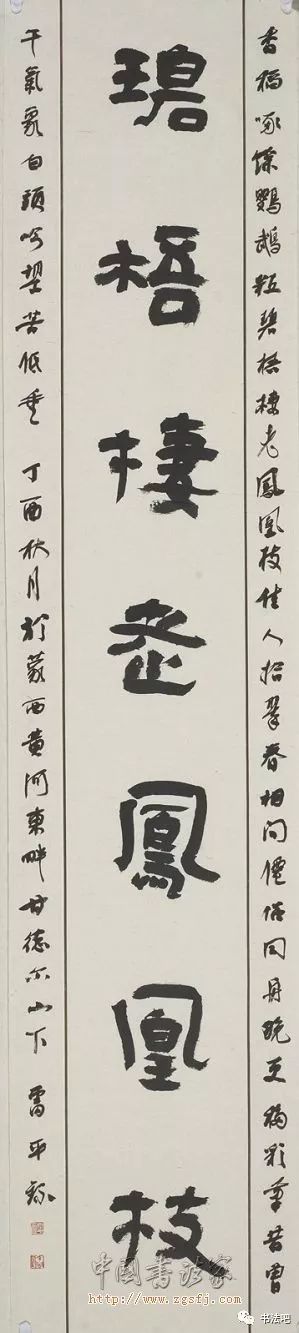 碧梧棲老鳳凰枝
香稻啄餘鸚鵡粒碧梧棲老鳳凰枝佳人拾翠春相問僊侶同舟晚更移彩筆昔曾
干氣象白頭吟望苦低垂 丁酉秋月於蒙西黄河東畔甘德尔山下 雷平録
中国书法家
http://www.zgsfj.com
书法吧